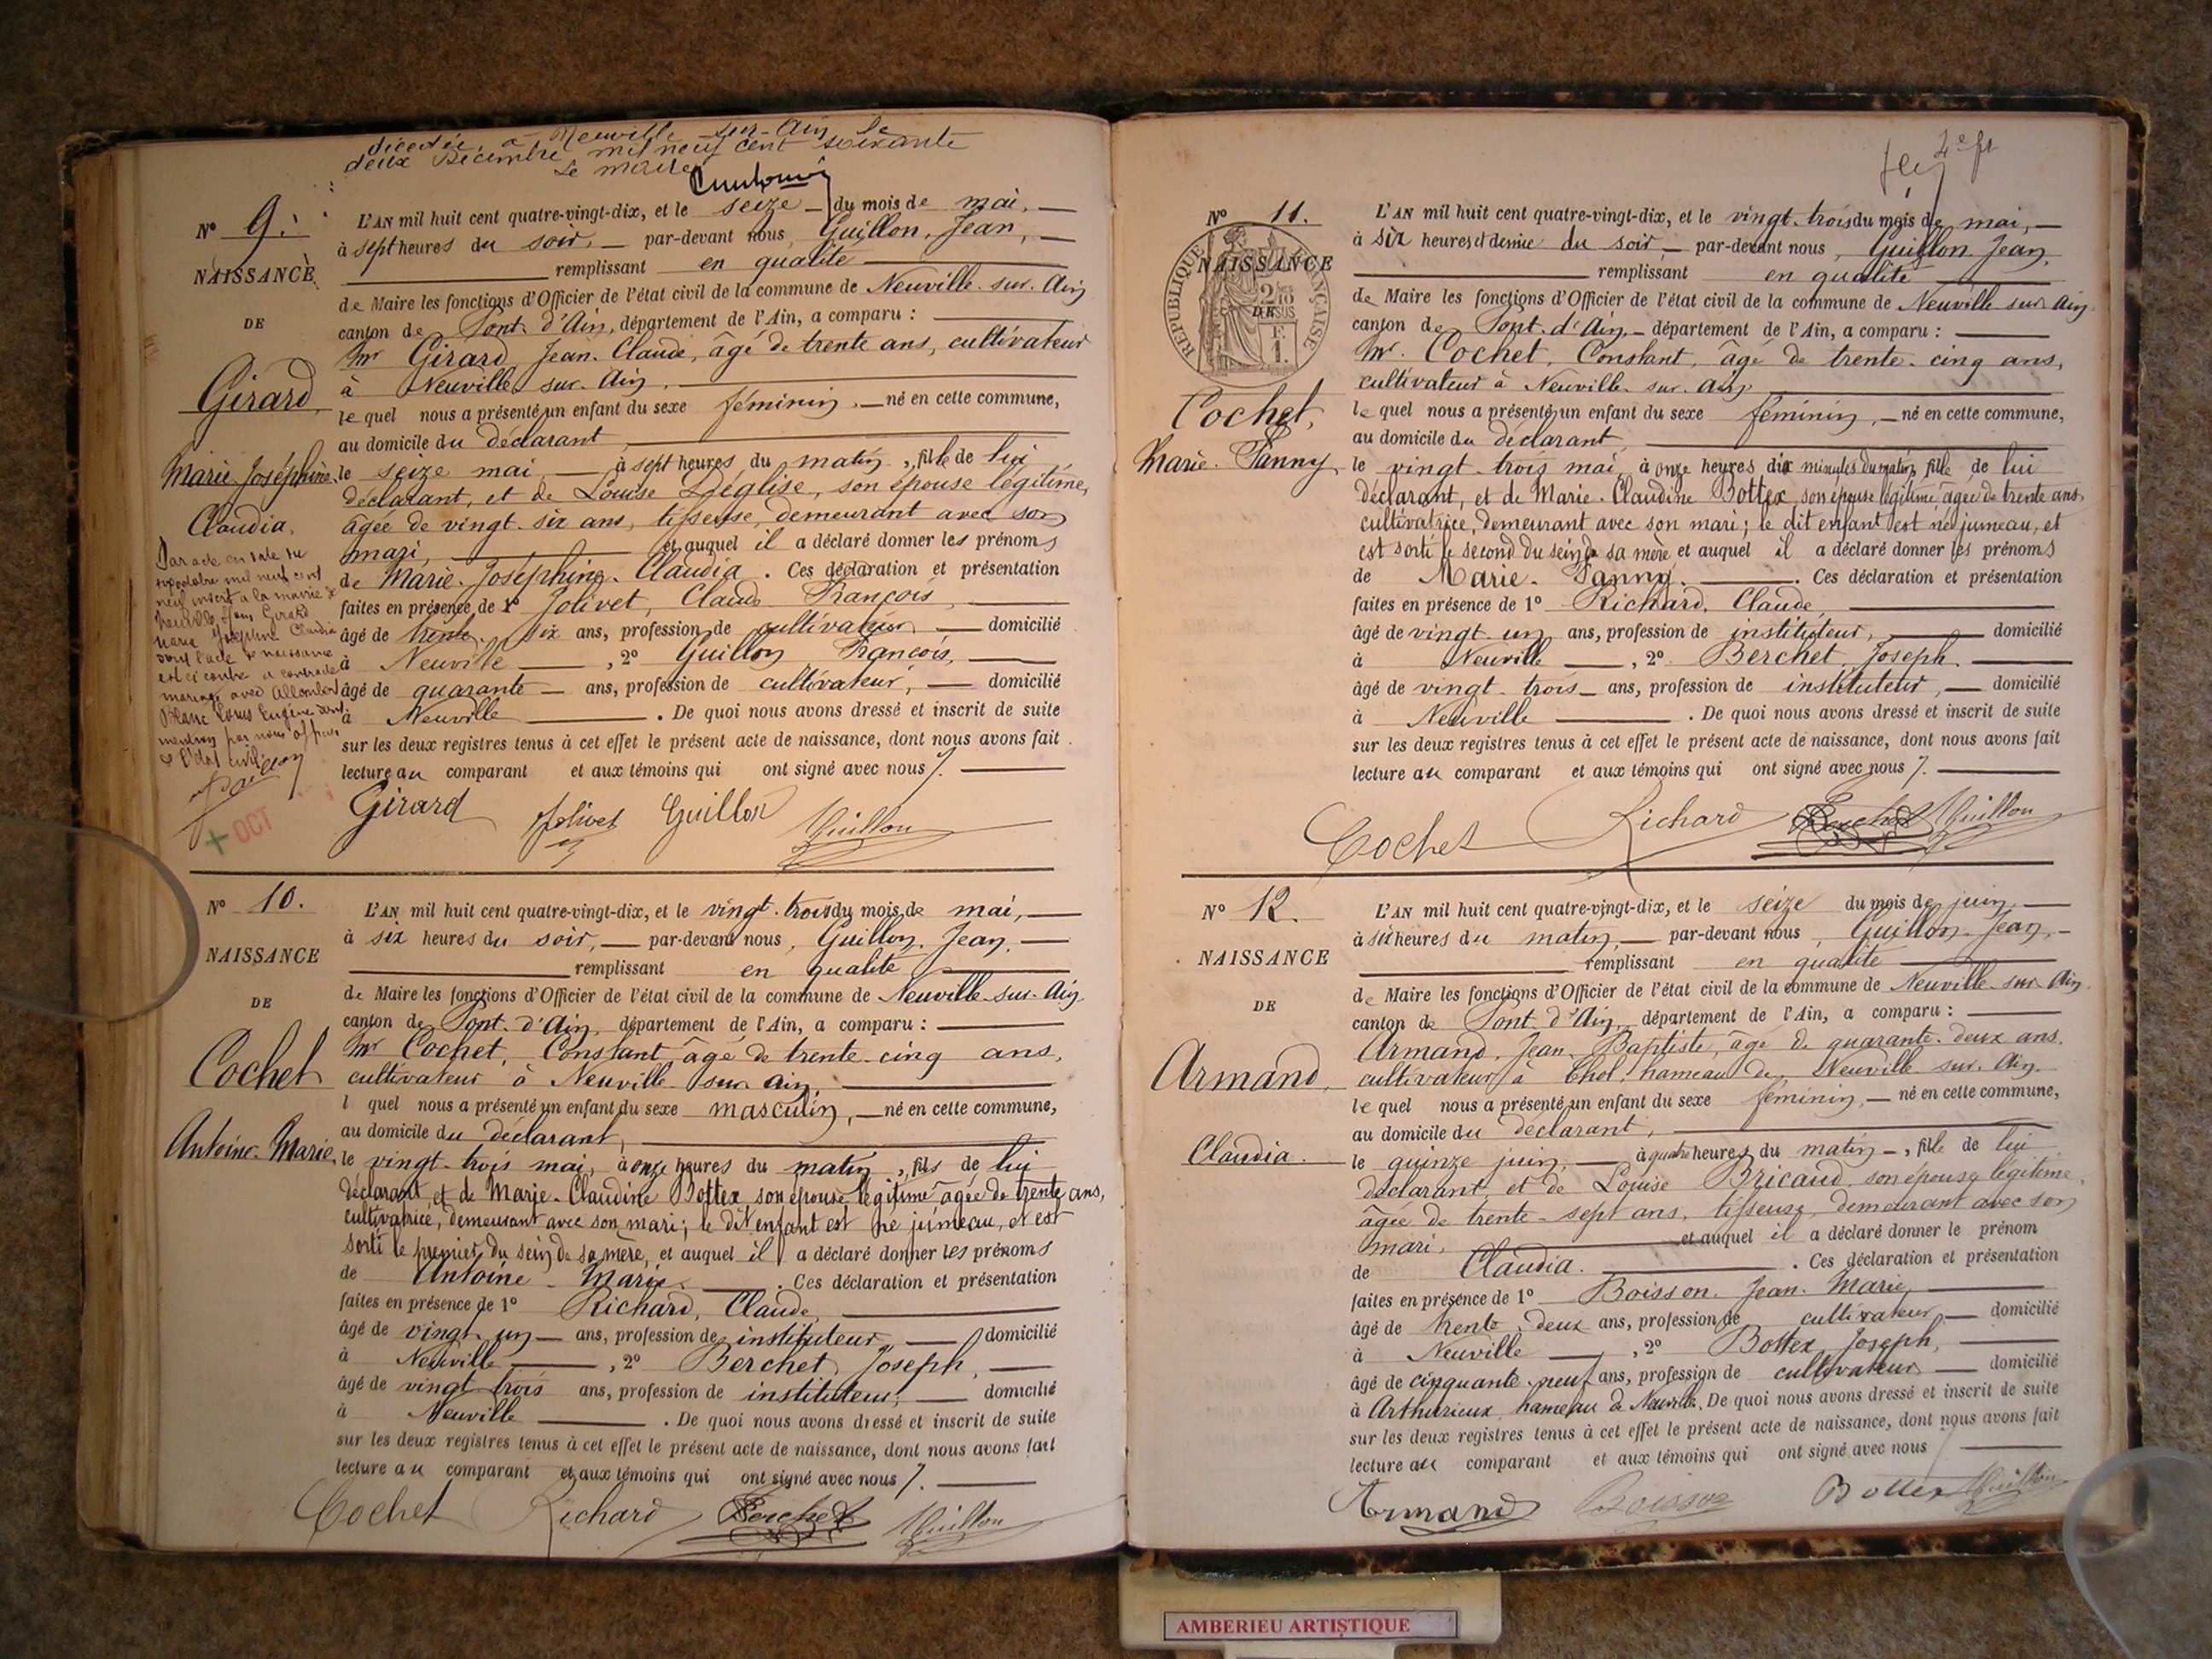 décédée à Neuville-sur-Ain le
deux Décembre mil neuf cent soixante
Le maire
N° 9.
NAISSANCE
DE
Girard,
Marie-Joséphine
Claudia.
L'AN mil huit cent quatre-vingt-dix, et le seize du mois de mai,
à sept heures du soir, par-devant nous, Guillon, Jean,
remplissant en qualité
de Maire les fonctions d'Officier de l'état civil de la commune de Neuville-sur-Ain
canton de Pont-d'Ain, département de l'Ain, a comparu :
Mr Girard, Jean-Claude, âgé de trente ans, cultivateur
à Neuville-sur-Ain,
lequel nous a présenté un enfant du sexe féminin, né en cette commune,
au domicile du déclarant,
le seize mai, à sept heures du matin, fille de lui
déclarant, et de Louise Déglise, son épouse légitime,
âgée de vingt-six ans, tisseuse, demeurant avec son
mari, et auquel il a déclaré donner les prénoms
de Marie-Joséphine-Claudia. Ces déclaration et présentation
faites en présence de 1° Jolivet, Claude François,
âgé de trente-six ans, profession de cultivateur domicilié
à Neuville, 2° Guillon François,
âgé de quarante ans, profession de cultivateur, domicilié
à Neuville. De quoi nous avons dressé et inscrit de suite
sur les deux registres tenus à cet effet le présent acte de naissance, dont nous avons fait
lecture au comparant et aux témoins qui ont signé avec nous.
Par acte en date du
octobre mil neuf cent
neuf inscrit à la mairie de
Neuville s/Ain Girard
Marie Joséphine Claudia
dont l'acte de naissance
est ci contre a contracté
mariage avec Allombert
Blanc Louis Eugène dont
mention par nous officier
de l'état civil.
OCT
Girard Jolivet Guillon Guillon
N° 10.
NAISSANCE
DE
Cochet
Antoine-Marie
L'AN mil huit cent quatre-vingt-dix, et le vingt-trois du mois de mai,
à six heures du soir, par-devant nous, Guillon, Jean,
remplissant en qualité
de Maire les fonctions d'Officier de l'état civil de la commune de Neuville-sur-Ain
canton de Pont-d'Ain, département de l'Ain, a comparu :
Mr Cochet, Constant, âgé de trente-cinq ans,
cultivateur à Neuville-sur-Ain,
l quel nous a présenté un enfant du sexe masculin, né en cette commune,
au domicile du déclarant,
le vingt-trois mai, à onze heures du matin, fils de lui
déclarant et de Marie-Claudine Bottex son épouse légitime âgée de trente ans,
cultivatrice, demeurant avec son mari; le dit enfant est né jumeau, et est
sorti le premier du sein de sa mère, et auquel il a déclaré donner les prénoms
de Antoine-Marie. Ces déclaration et présentation
faites en présence de 1° Richard, Claude,
âgé de vingt-un ans, profession de instituteur, domicilié
à Neuville, 2° Berchet, Joseph,
âgé de vingt trois ans, profession de instituteur, domicilié
à Neuville. De quoi nous avons dressé et inscrit de suite
sur les deux registres tenus à cet effet le présent acte de naissance, dont nous avons fait
lecture au comparant et aux témoins qui ont signé avec nous.
Cochet Richard Berchet Guillon
2e ft
N° 11.
NAISSANCE
DE
RÉPUBLIQUE FRANÇAISE
Cochet,
Marie-Fanny
L'AN mil huit cent quatre-vingt-dix, et le vingt-trois du mois de mai,
à six heures et demie du soir, par-devant nous, Guillon, Jean,
remplissant en qualité
de Maire les fonctions d'Officier de l'état civil de la commune de Neuville-sur-Ain,
canton de Pont-d'Ain, département de l'Ain, a comparu :
Mr. Cochet, Constant, âgé de trente-cinq ans,
cultivateur à Neuville-sur-Ain
lequel nous a présenté un enfant du sexe féminin, né en cette commune,
au domicile du déclarant,
le vingt-trois mai, à onze heures dix minutes du matin, fille de lui
déclarant, et de Marie-Claudine Bottex, son épouse légitime âgée de trente ans
cultivatrice, demeurant avec son mari; le dit enfant est né jumeau, et
est sorti le second du sein de sa mère et auquel il a déclaré donner les prénoms
de Marie-Fanny. Ces déclaration et présentation
faites en présence de 1° Richard, Claude,
âgé de vingt-un ans, profession de instituteur, domicilié
à Neuville, 2° Berchet, Joseph,
âgé de vingt-trois ans, profession de instituteur, domicilié
à Neuville. De quoi nous avons dressé et inscrit de suite
sur les deux registres tenus à cet effet le présent acte de naissance, dont nous avons fait
lecture au comparant et aux témoins qui ont signé avec nous.
Cochet Richard Berchet Guillon
N° 12.
NAISSANCE
DE
Armand,
Claudia.
L'AN mil huit cent quatre-vingt-dix, et le seize du mois de juin,
à six heures du matin, par-devant nous, Guillon, Jean,
remplissant en qualité
de Maire les fonctions d'Officier de l'état civil de la commune de Neuville-sur-Ain,
canton de Pont-d'Ain, département de l'Ain, a comparu :
Armand, Jean-Baptiste, âgé de quarante-deux ans,
cultivateur à Thol, hameau de Neuville-sur-Ain,
lequel nous a présenté un enfant du sexe féminin, né en cette commune,
au domicile du déclarant,
le quinze juin, à quatre heures du matin, fille de lui
déclarant, et de Louise Bricaud, son épouse légitime,
âgée de trente-sept ans, tisseuse, demeurant avec son
mari, et auquel il a déclaré donner le prénom
de Claudia. Ces déclaration et présentation
faites en présence de 1° Boisson, Jean-Marie,
âgé de trente-deux ans, profession de cultivateur, domicilié
à Neuville, 2° Bottex, Joseph,
âgé de cinquante-neuf ans, profession de cultivateur domicilié
à Arthurieux, hameau de Neuville. De quoi nous avons dressé et inscrit de suite
sur les deux registres tenus à cet effet le présent acte de naissance, dont nous avons fait
lecture au comparant et aux témoins qui ont signé avec nous
Armand Boisson Bottex Guillon
AMBERIEU ARTISTIQUE